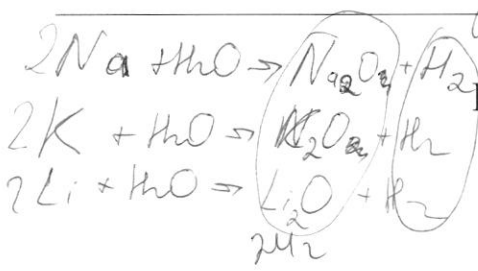 2Na + H2O → Na2O + H2
2K + H2O → K2O + H2
2Li + H2O → Li2O + H2